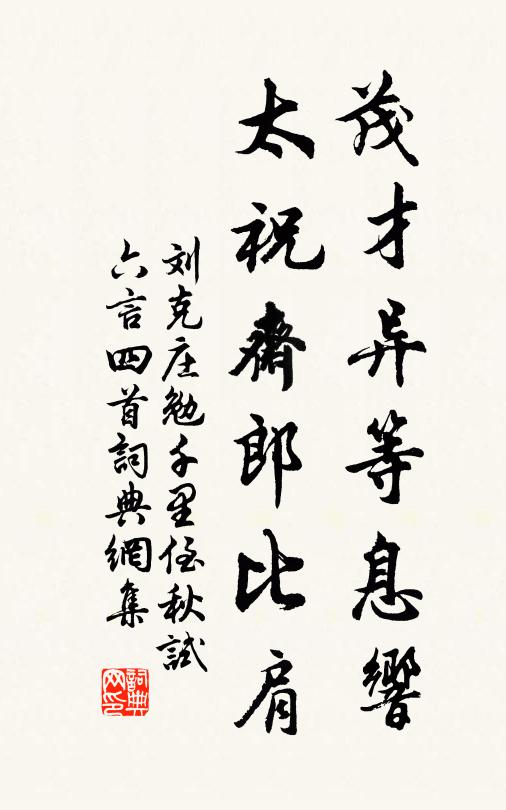 茂才异等息響
太祝齋郎比肩
刘克庄勉千里侄秋試
六言四首詞典網集
詞典网印